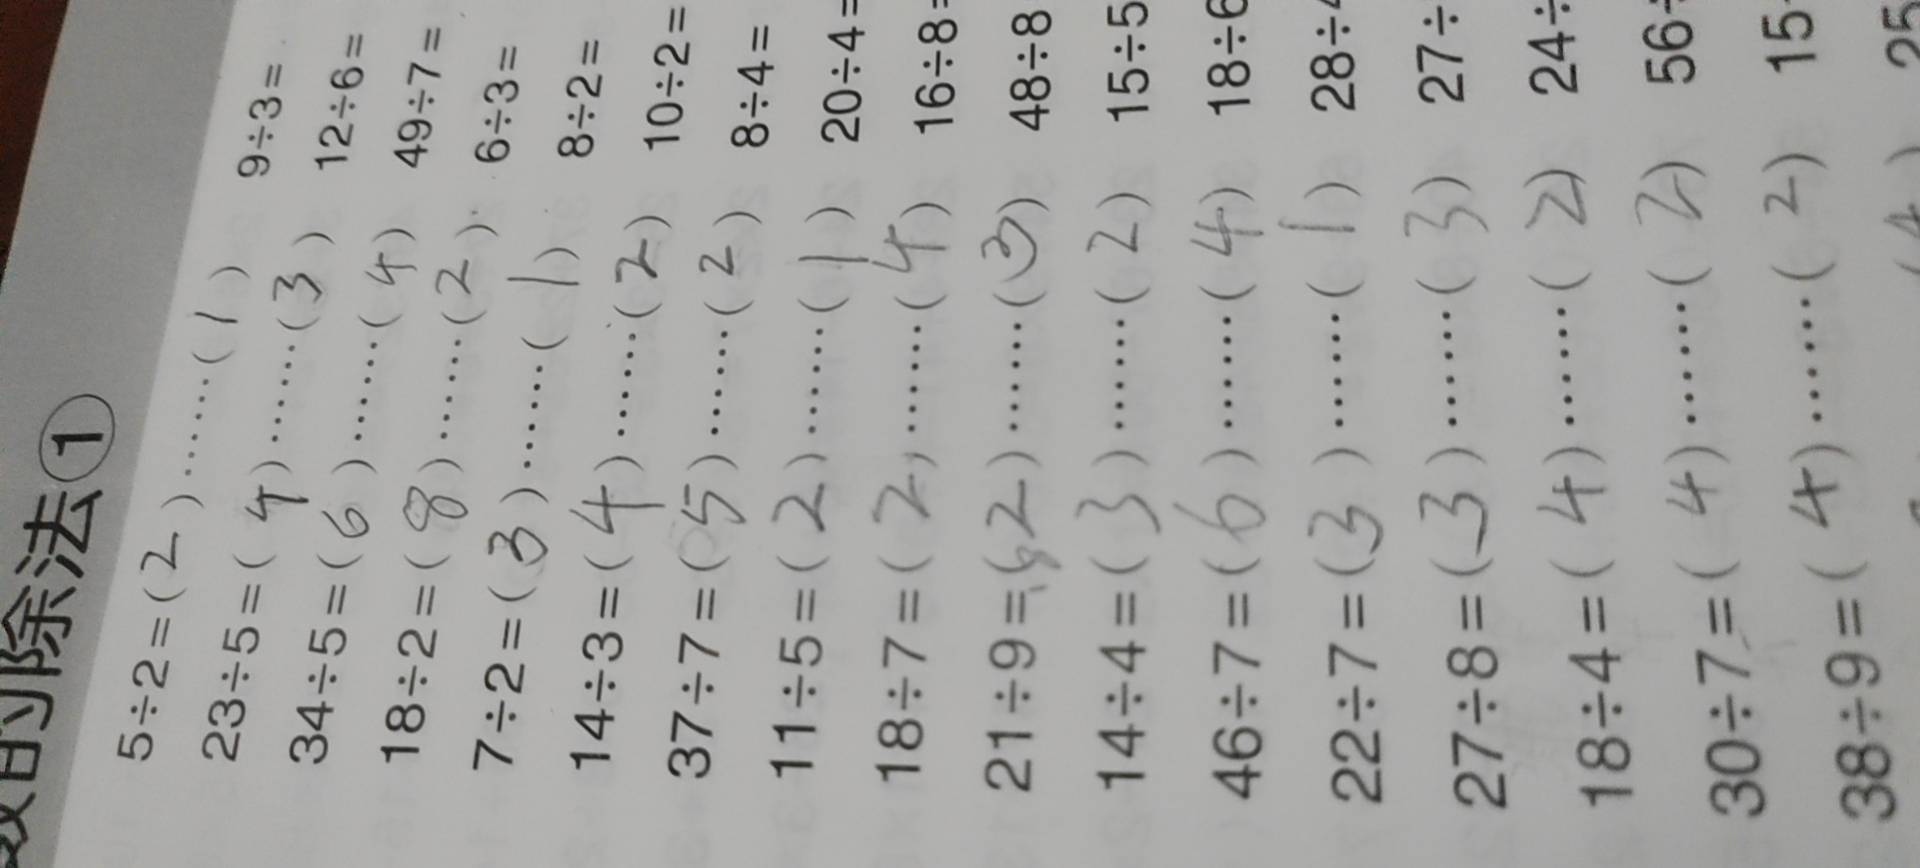 的除法①
5÷2=(2)……(1)
23÷5=(4)……(3)
34÷5=(6)……(4)
18÷2=(8)……(2)
7÷2=(3)……(1)
14÷3=(4)……(2)
37÷7=(5)……(2)
11÷5=(2)……(1)
18÷7=(2)……(4)
21÷9=(2)……(3)
14÷4=(3)……(2)
46÷7=(6)……(4)
22÷7=(3)……(1)
27÷8=(3)……(3)
18÷4=(4)……(2)
30÷7=(4)……(2)
38÷9=(4)……(2)
9÷3=
12÷6=
49÷7=
6÷3=
8÷2=
10÷2=
8÷4=
20÷4=
16÷8=
48÷8
15÷5
18÷6
28÷
27÷
24÷
56÷
15
25